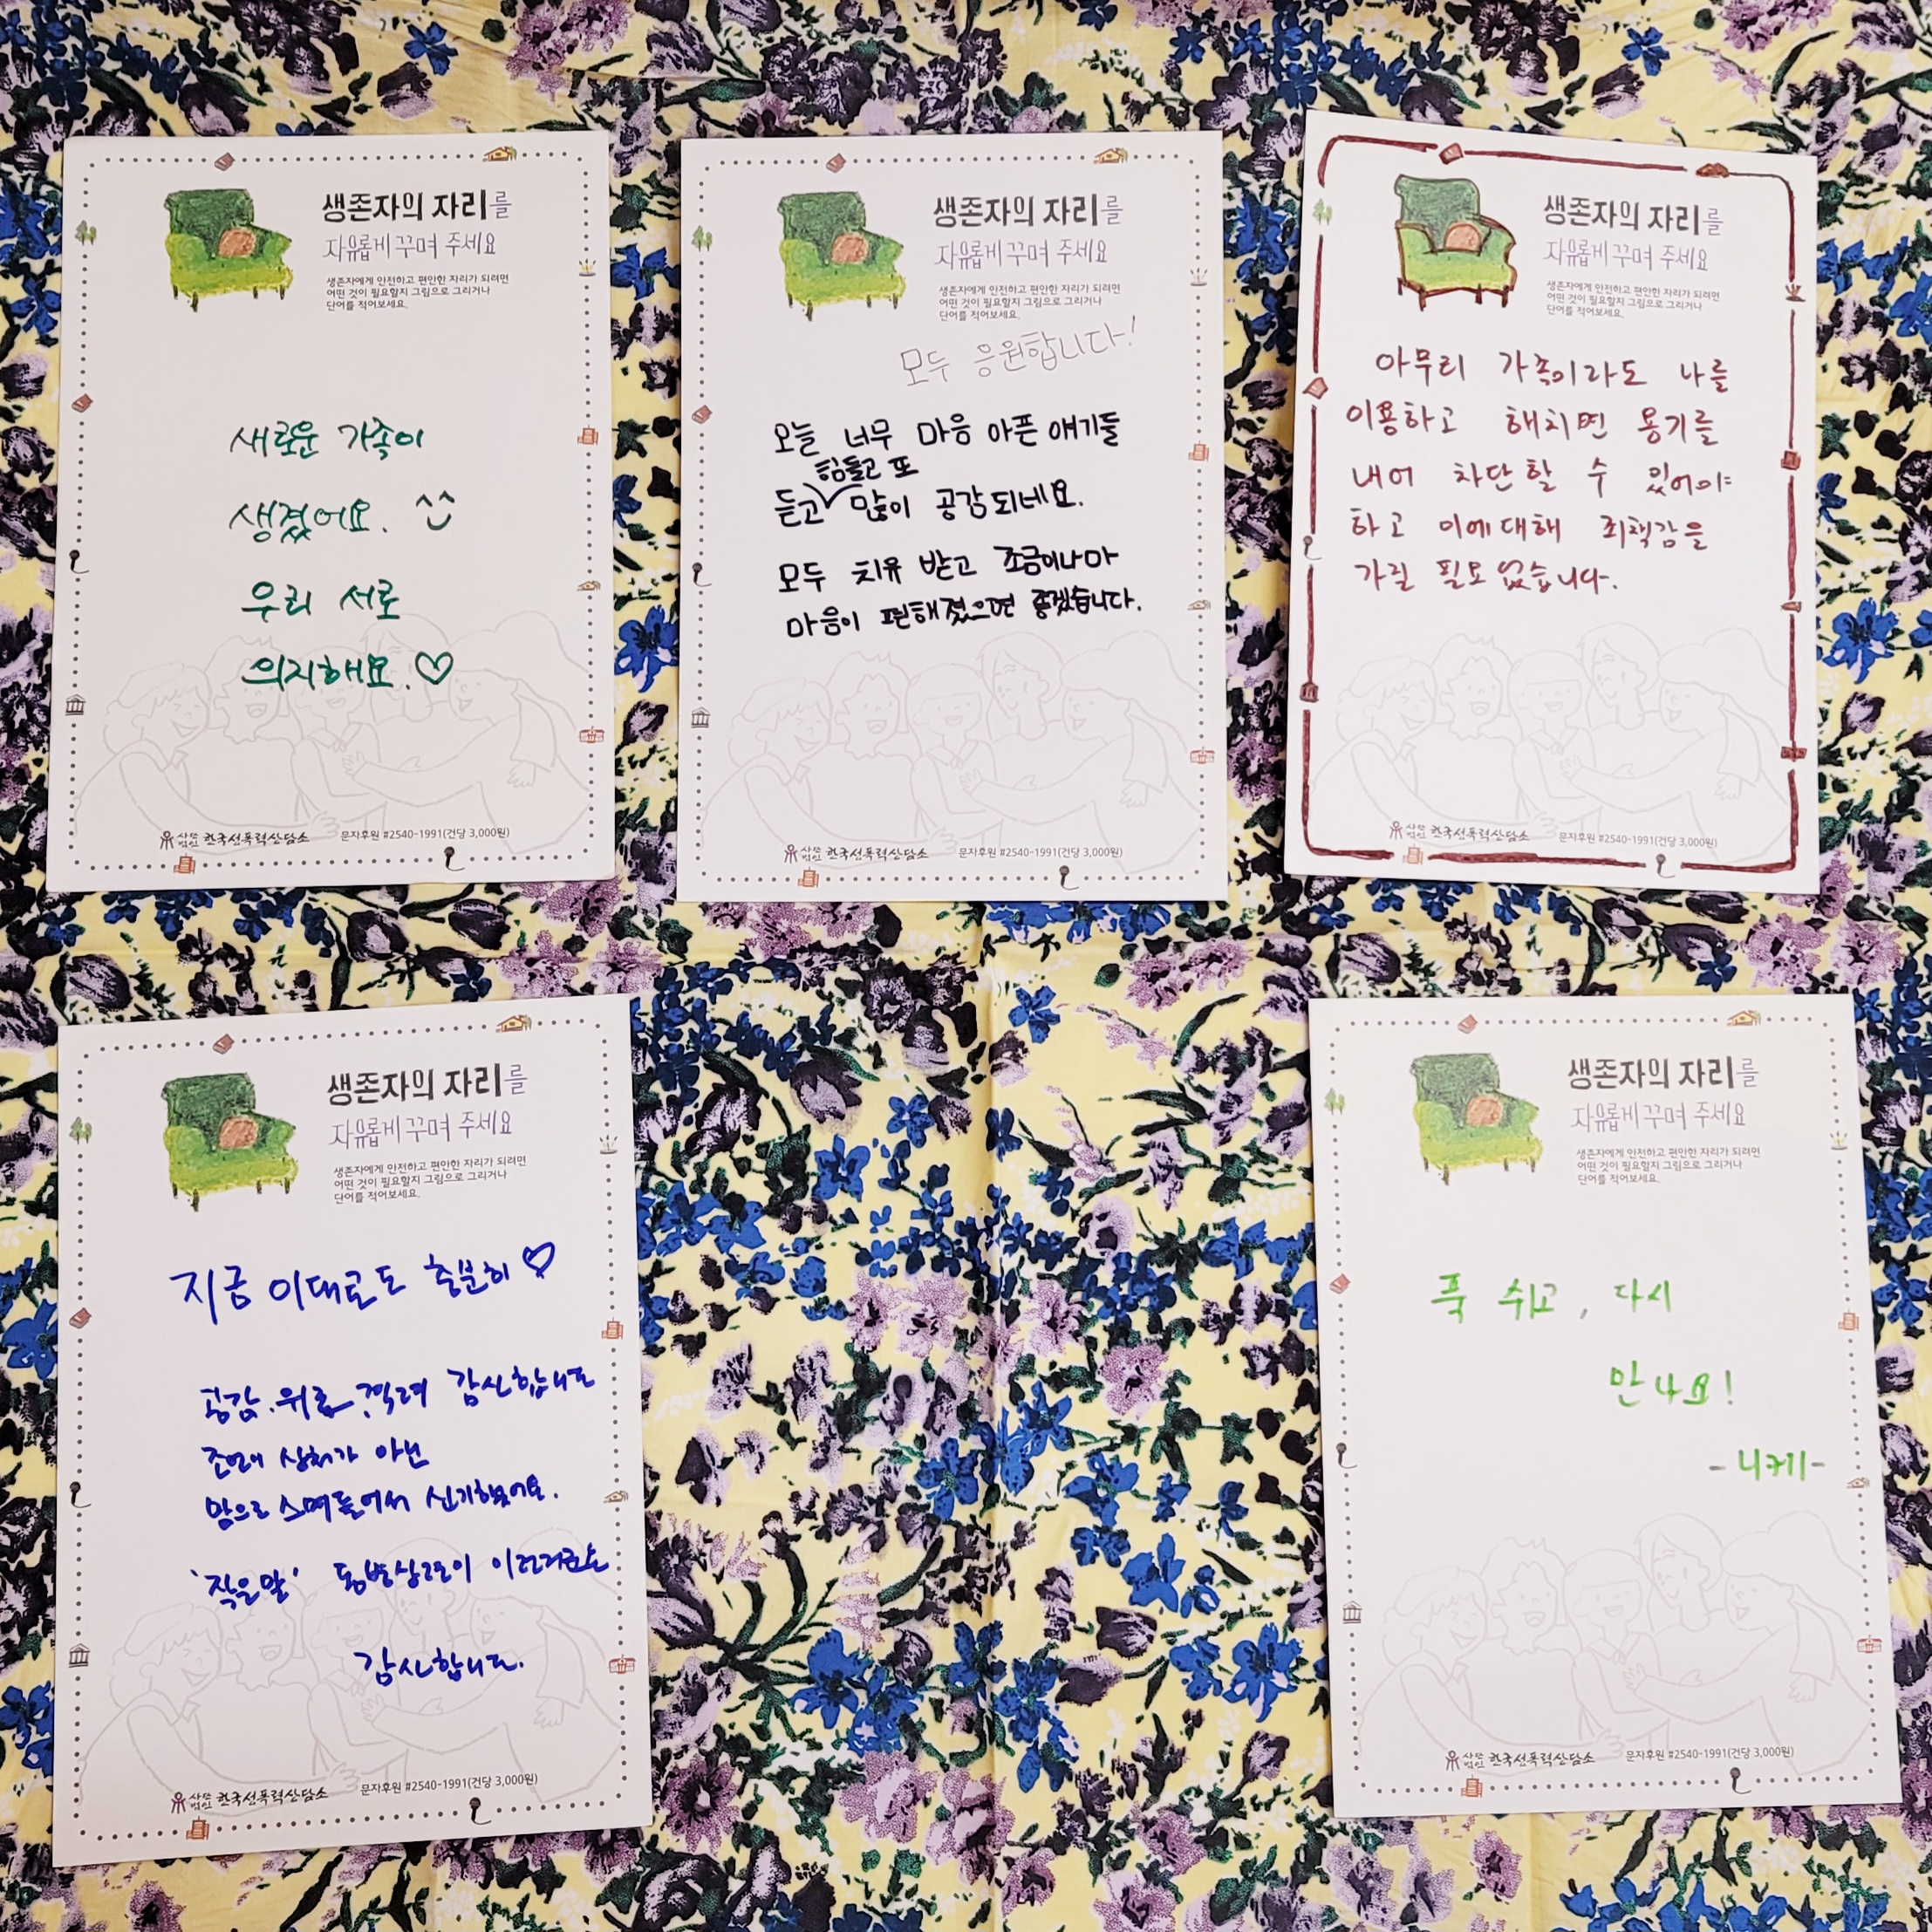 생존자의 자리를
자유롭게 꾸며 주세요
생존자에게 안전하고 편안한 자리가 되려면
어떤 것이 필요할지 그림으로 그리거나
단어를 적어보세요.
새로운 가족이
생겼어요. ^^
우리 서로
의지해요. ♡
사단법인 한국성폭력상담소 문자후원 #2540-1991(건당 3,000원)
생존자의 자리를
자유롭게 꾸며 주세요
생존자에게 안전하고 편안한 자리가 되려면
어떤 것이 필요할지 그림으로 그리거나
단어를 적어보세요.
모두 응원합니다!
오늘 너무 마음 아픈 얘기들
힘들고 또
듣고 많이 공감되네요.
모두 치유 받고 조금이나마
마음이 편해졌으면 좋겠습니다.
사단법인 한국성폭력상담소 문자후원 #2540-1991(건당 3,000원)
생존자의 자리를
자유롭게 꾸며 주세요
생존자에게 안전하고 편안한 자리가 되려면
어떤 것이 필요할지 그림으로 그리거나
단어를 적어보세요.
아무리 가족이라도 나를
이용하고 해치면 용기를
내어 차단할 수 있어야
하고 이에대해 죄책감을
가질 필요 없습니다.
사단법인 한국성폭력상담소 문자후원 #2540-1991(건당 3,000원)
생존자의 자리를
자유롭게 꾸며 주세요
생존자에게 안전하고 편안한 자리가 되려면
어떤 것이 필요할지 그림으로 그리거나
단어를 적어보세요.
지금 이대로도 충분히 ♡
공감. 위로. 격려 감사합니다
조언이 상처가 아닌
맘으로 스며들어서 신기했어요.
'작은말' 동병상련이 이런거군요
감사합니다.
사단법인 한국성폭력상담소 문자후원 #2540-1991(건당 3,000원)
생존자의 자리를
자유롭게 꾸며 주세요
생존자에게 안전하고 편안한 자리가 되려면
어떤 것이 필요할지 그림으로 그리거나
단어를 적어보세요.
푹 쉬고, 다시
만나요!
-니케-
사단법인 한국성폭력상담소 문자후원 #2540-1991(건당 3,000원)